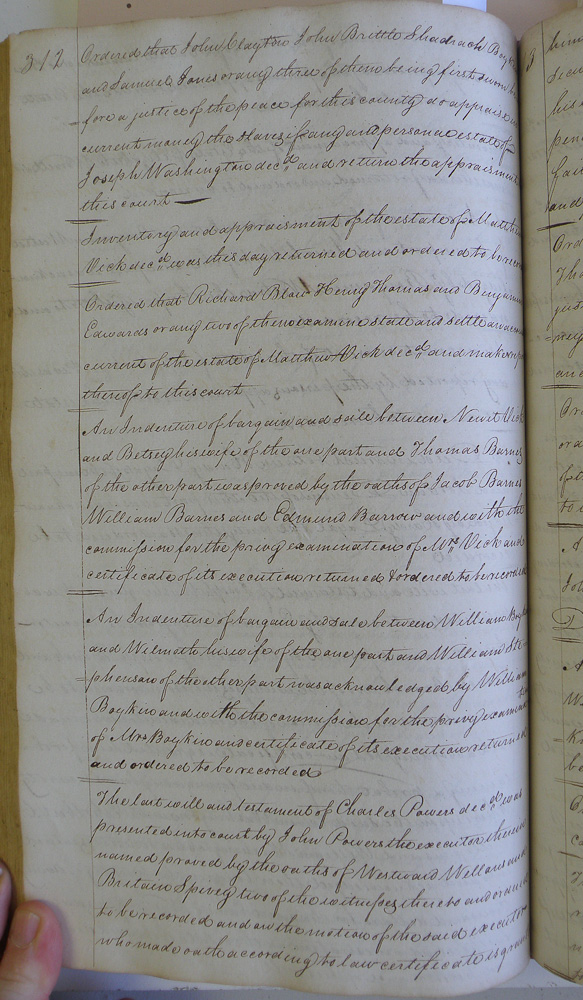 312
Ordered that John Clayton John Brittle Shadrach
and Samuel Jones or any three of them being first sworn
fore a justice of the peace for this county do appraise in
current money the slaves if any and personal estate of
Joseph Washington decd. and return the appraisment
this court
Inventory and appraisment of the estate of Matthew
Vick decd. was this day returned and ordered to be
Ordered that Richard Blow Henry Thomas and Benjamin
Edwards or any two of them examine state and settle an
current of the estate of Matthew Vick decd. and make
thereof to this court
An Indenture of bargain and sale between Newit Vick
and Betsey his wife of the one part and Thomas Barnes
of the other part was proved by the oaths of Jacob Barnes
William Barnes and Edmund Barrow and with the
commission for the privy examination of Mrs. Vick and
certificate of its execution returned & ordered to be recorded
An Indenture of bargain and sale between William
and Wilmoth his wife of the one part and William Ste
phenson of the other part was acknowledged by William
Boykin and with the commission for the privy examina
tion
of Mrs. Boykin and certificate of its execution returned
and ordered to be recorded
The last will and testament of Charles Powers decd. was
presented into court by John Powers the executor therein
named proved by the oaths of Westward Wellons and
Britain Spivey two of the witnesses thereto and
to be recorded and on the motion of the said executor
who made oath according to law certificate is